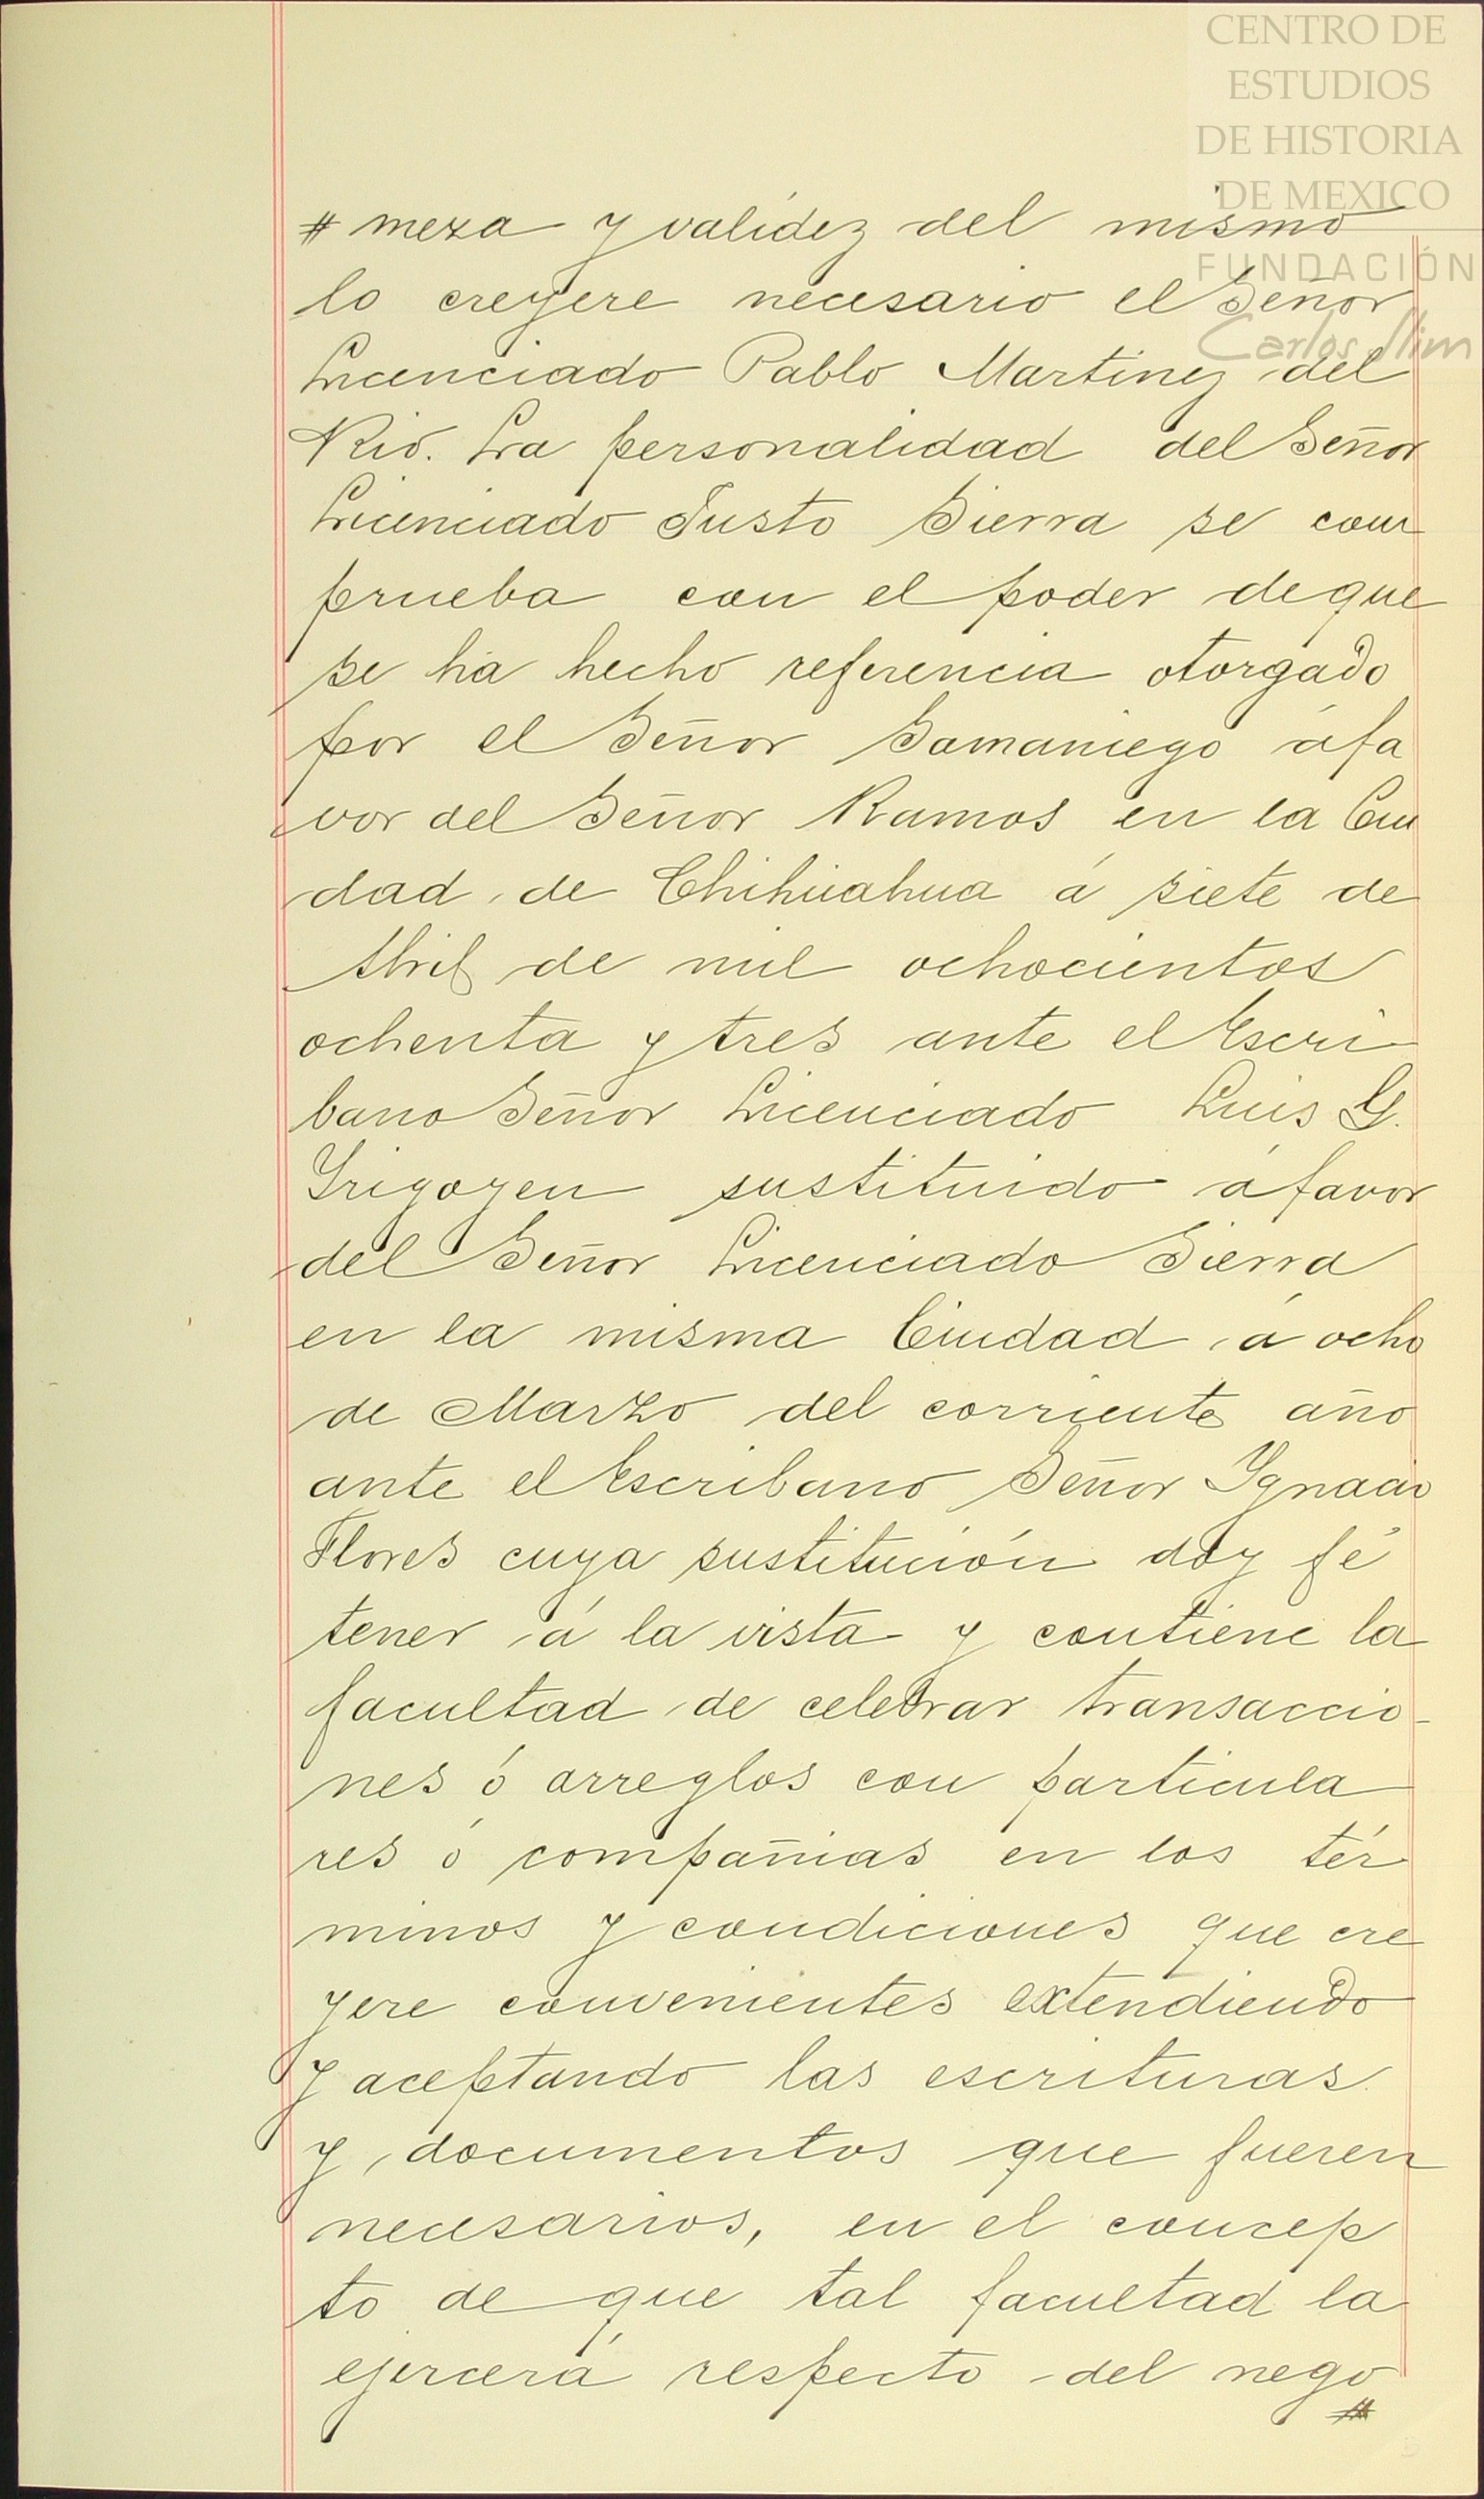 CENTRO DE
ESTUDIOS
DE HISTORIA
DE MEXICO
FUNDACIÓN
Carlos Slim
# meza y validez del mismo
lo creyere necesario el Señor
Licenciado Pablo Martinez del
Rio. La personalidad del Señor
Licenciado Justo Sierra se com
prueba con el poder de que
se ha hecho referencia otorgado
por el Señor Samaniego á fa
vor del Señor Ramos en la Ciu
dad de Chihuahua á siete de
Abril de mil ochocientos
ochenta y tres ante el Escri
bano Señor Licenciado Luis G.
Yrigoyen sustituido á favor
del Señor Licenciado Sierra
en la misma Ciudad á ocho
de Marzo del corriente año
ante el Escribano Señor Ygnacio
Flores cuya sustitución doy fé
tener á la vista y contiene la
facultad de celebrar transaccio-
nes ó arreglos con particula
res ó compañias en los tér
minos y condiciones que cre
yere convenientes extendiendo
y aceptando las escrituras
y documentos que fueren
necesarios, en el concep
to de que tal facultad la
ejercerá respecto del nego
#